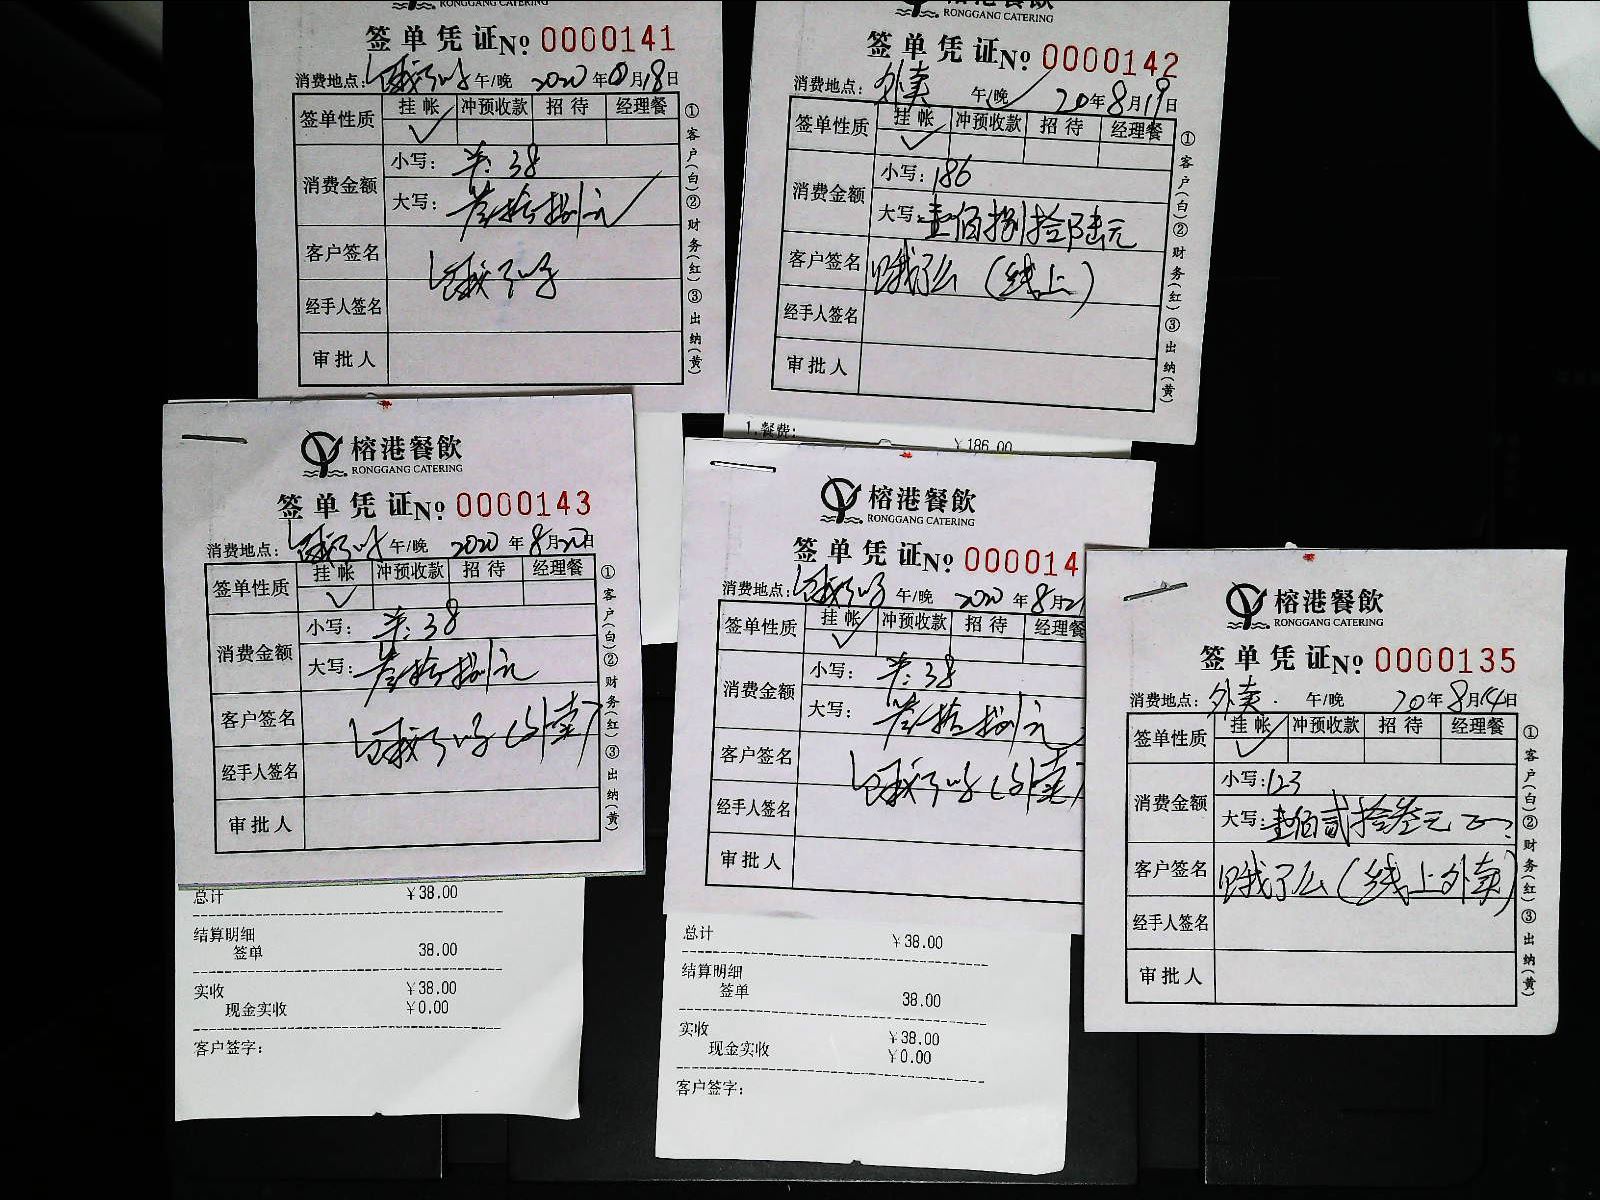 RONGGANG CATERING
签单凭证№ 0000141
消费地点：饿了吗 午/晚 2020年8月18日
签单性质 挂帐 冲预收款 招待 经理餐
✓
消费金额 小写：半：38
大写：叁拾捌元
客户签名 饿了吗
经手人签名
审批人
①客户(白)②财务(红)③出纳(黄)
榕港餐飲
RONGGANG CATERING
签单凭证№ 0000142
消费地点：外卖 午/晚 20年8月19日
签单性质 挂帐 冲预收款 招待 经理餐
✓
消费金额 小写：186
大写：壹佰捌拾陆元
客户签名 饿了么（线上）
经手人签名
审批人
①客户(白)②财务(红)③出纳(黄)
1.餐费： ￥186.00
榕港餐飲
RONGGANG CATERING
签单凭证№ 0000143
消费地点：饿了吗 午/晚 2020年8月20日
签单性质 挂帐 冲预收款 招待 经理餐
✓
消费金额 小写：半：38
大写：叁拾捌元
客户签名 饿了吗（外卖）
经手人签名
审批人
①客户(白)②财务(红)③出纳(黄)
总计 ￥38.00
结算明细
签单 38.00
实收 ￥38.00
现金实收 ￥0.00
客户签字：
榕港餐飲
RONGGANG CATERING
签单凭证№ 000014
消费地点：饿了吗 午/晚 2020年8月21
签单性质 挂帐 冲预收款 招待 经理餐
✓
消费金额 小写：半：38
大写：叁拾捌元
客户签名 饿了吗（外卖）
经手人签名
审批人
总计 ￥38.00
结算明细
签单 38.00
实收 ￥38.00
现金实收 ￥0.00
客户签字：
榕港餐飲
RONGGANG CATERING
签单凭证№ 0000135
消费地点：外卖. 午/晚 20年8月14日
签单性质 挂帐 冲预收款 招待 经理餐
✓
消费金额 小写：123
大写：壹佰贰拾叁元
客户签名 饿了么（线上外卖）
经手人签名
审批人
①客户(白)②财务(红)③出纳(黄)